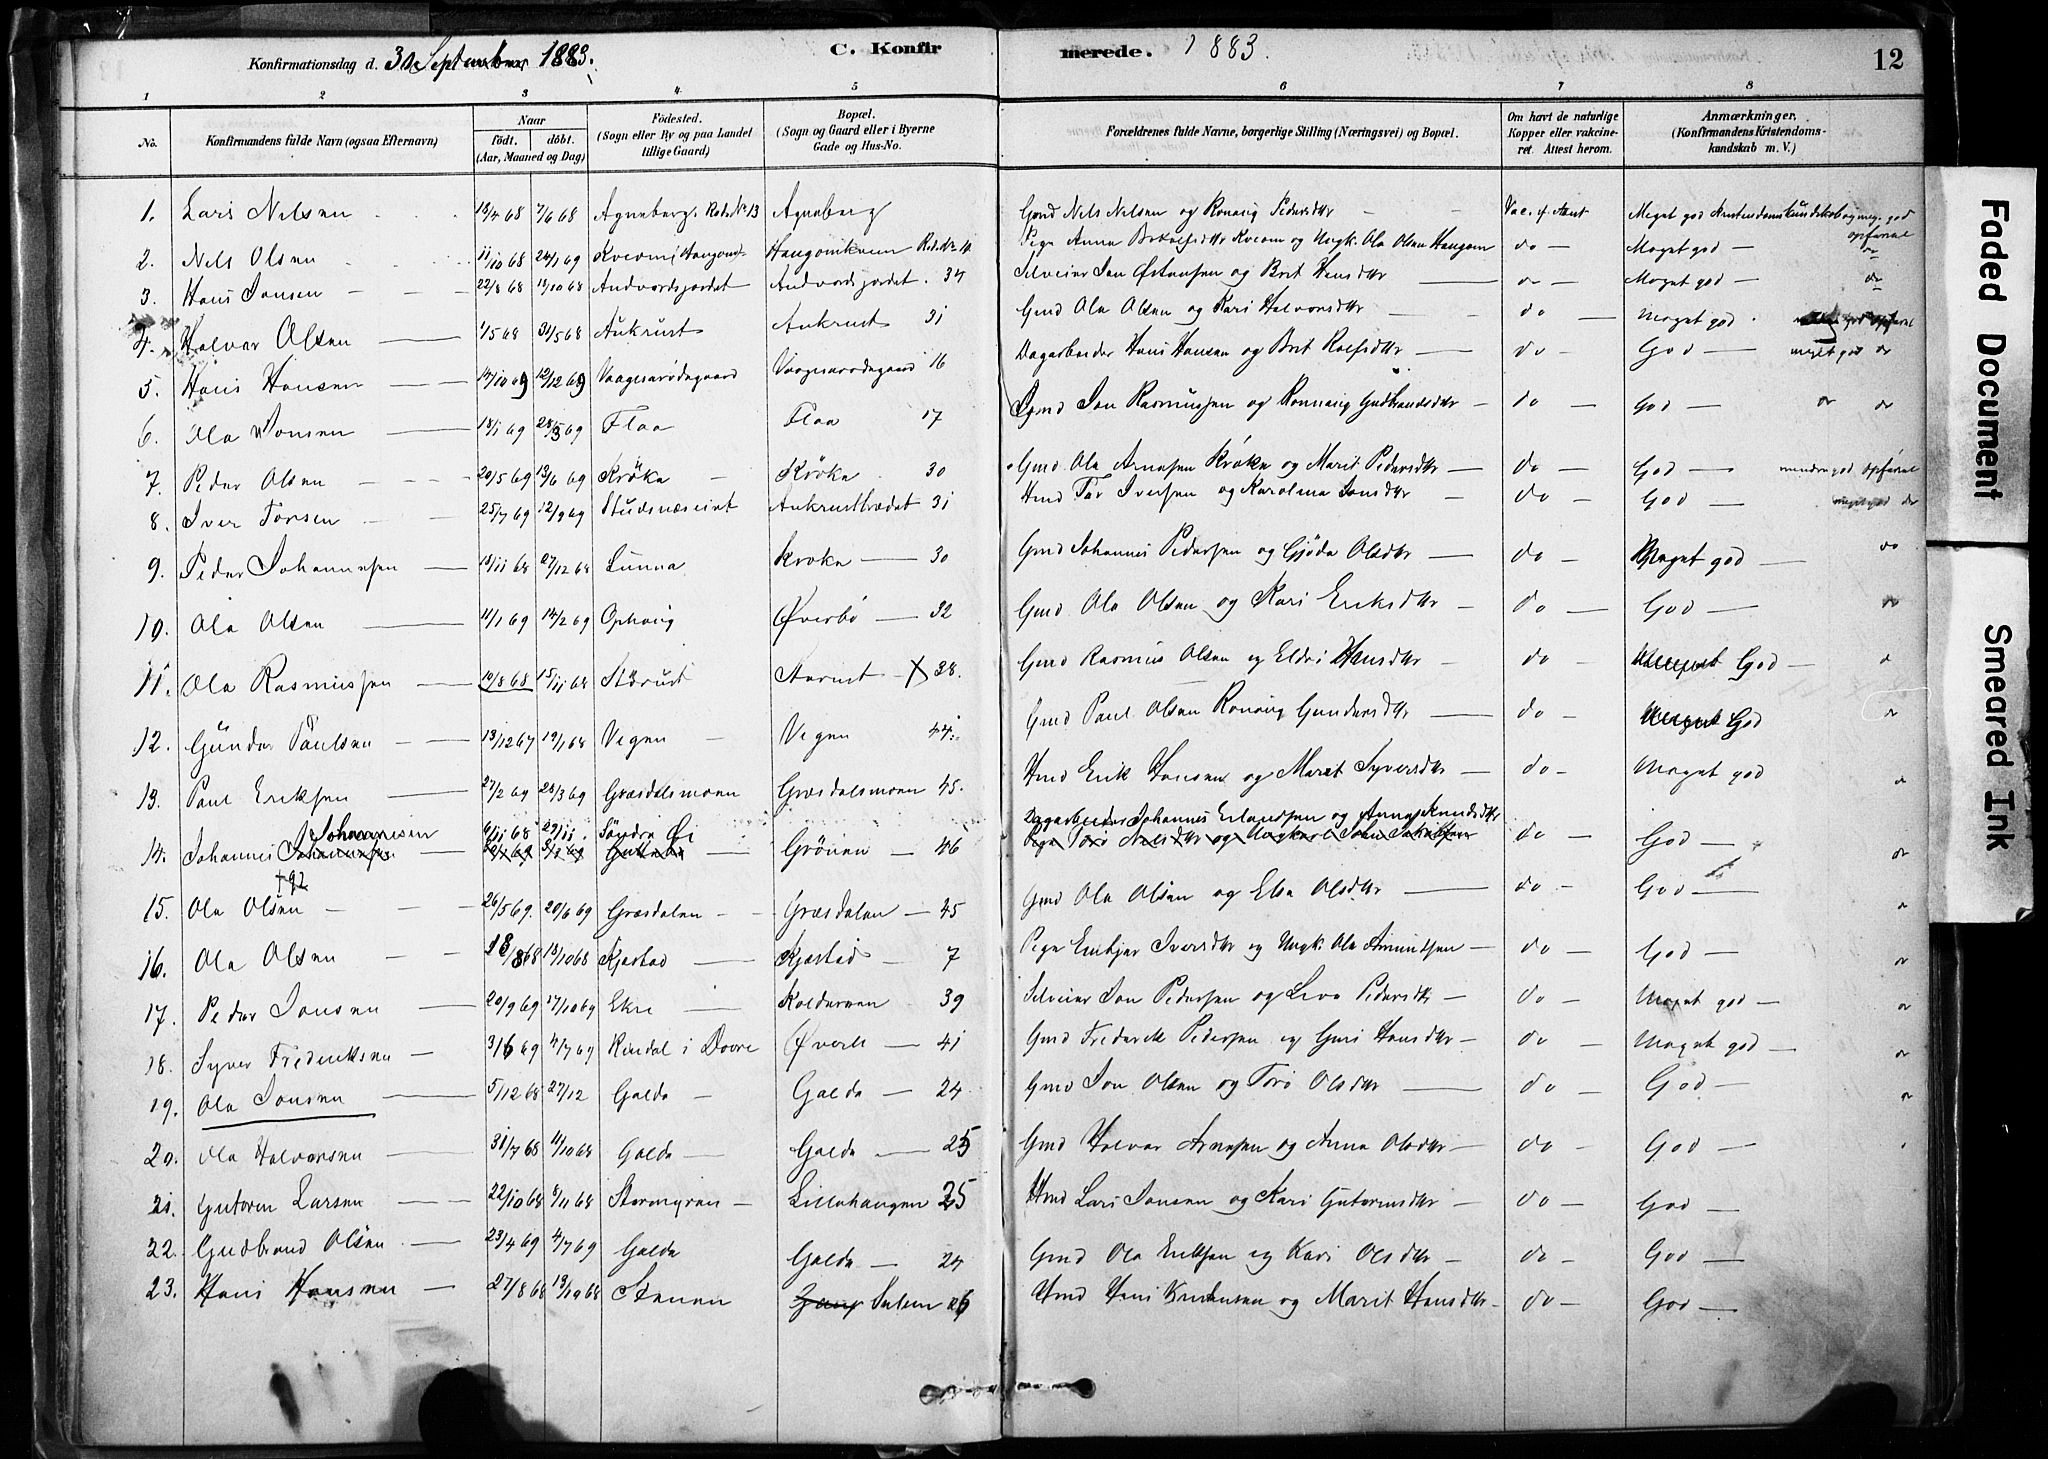 Konfirmationsdag d. 30 September 1883.
C. Konfirmerede. 1883
12
1 2 3 4 5 6 7 8
No.
Konfirmandens fulde Navn (ogsaa Efternavn)
Naar
født. døbt.
(Aar, Maaned og Dag)
Födested.
(Sogn eller By og paa Landet
tillige Gaard)
Bopæl.
(Sogn og Gaard eller i Byerne
Gade og Hus-No.
Forældrenes fulde Navne, borgerlige Stilling (Næringsvei) og Bopæl.
Om havt de naturlige
Kopper eller vakcine-
ret. Attest herom.
Anmærkninger.
(Konfirmandens Kristendoms-
kundskab m. V.)
1. Lars Nilsen 7/6 68 Agneberg Agneberg Gmd Nels Nelsen og Ronnaug Pedersdtr Meget god Kristendomskundskab og meg. god opførsel
2. Nils Olsen 11/10 68 24/1 69 do Meget god do
3. Hans Jonsen 22/8 68 Andvordsjordet Andvordsjordet 34 Selveier Jon Østensen og Brit Hansdtr do Meget god do
4. Halvar Olsen 1/5 68 31/5 68 Aukrust Aukrust 31 Gmd Ola Olsen og Kari Halvorsdtr do Meget god
5. Hans Hansen 14/10 69 12/12 69 Vaagesarødegaard Vaagesarødegaard 16 Dagarbeider Hans Hansen og Brit Rolfsdtr do God meget god do
6. Ola Jonsen 18/1 69 28/3 69 Flaa Flaa 17 Gmd Jon Rasmussen og Ronnaug Gudbrandsdtr do God do do
7. Peder Olsen 20/5 69 13/6 69 Krøke Krøke 30 Gmd Ola Arnesen Krøke og Marit Pedersdtr do God mindre god opførsel
8. Iver Torsen 25/7 69 12/9 69 Aukrusttrædet 31 Hmd Tor Iversen og Karolina Jonsdtr do God meget god do
9. Peder Johannesen 18/11 68 27/12 68 Lunna Kroke 30 Gmd Johannes Pedersen og Gjøda Olsdtr do Meget god do
10. Ola Olsen 11/1 69 14/2 69 Ophaug Øverbø 32 Gmd Ola Olsen og Kari Eriksdtr do God do
11. Ola Rasmussen 19/8 68 15/11 68 Storust X 38. Gmd Rasmus Olsen og Eldri Hansdtr do God
12. Gundar Paulsen 13/12 67 19/1 68 Vegen Vegen 44. Gmd Paul Olsen Ronnug Gundersdtr do God
13. Paul Eriksen 27/2 69 28/3 69 Græsdalsmoen Græsdalsmoen 45. Hmd Erik Hansen og Marit Syversdtr do Meget god
14. Johannes Johannesen 6/11 68 29/11 Søndre Øi Grönen 46 Dagarbeider Johannes Erlandsen og Anna Knudsdtr do God
† 92
15. Ola Olsen 26/5 69. 20/6 69 Græsdalen Græsdalen 45 Gmd Ola Olsen og Elsa Olsdtr do God
16. Ola Olsen 18/8 68 18/10 68 Kjæstad Kjæstad 7 Pige Embjør Iversdtr og Ungk. Ola Amundsen do God
17. Peder Jonsen 20/9 69 17/10 69 Ekre 39 Selveier Jon Pedersen og Liva Pedersdtr do Meget god
18. Syver Frederiksen 3/6 69 4/7 69 Rindal i Dovre Øverli 41 Gmd Frederik Pedersen og Guri Hansdtr do Meget god
19. Ola Jonsen 5/12 68 27/12 Galde Galde 24 Gmd Jon Olsen og Toro Olsdtr do God
20. Ola Halvorsen 31/7 68 11/10 68 Galde Galde 25 Gmd Halvar Arnesen og Anna Olsdtr do God
21. Gutorm Larsen 22/10 68 8/11 68 Stormyren Lillehaugen 25 Hmd Lars Jonsen og Kari Gutormsdtr do God
22. Gudbrand Olsen 23/4 69 4/7 69 Galde Galde 24 Gmd Ola Eriksen og Kari Olsdtr do God
23. Hans Hansen 27/8 68 Stenen 26 Hmd Hans Kristensen og Marit Hansdtr do God
Faded Document
Smeared Ink